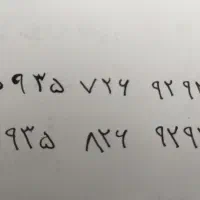 ۹۳۵ ۷۲۶ ۹۲۹
۹۳۵ ۸۲۶ ۹۲۹